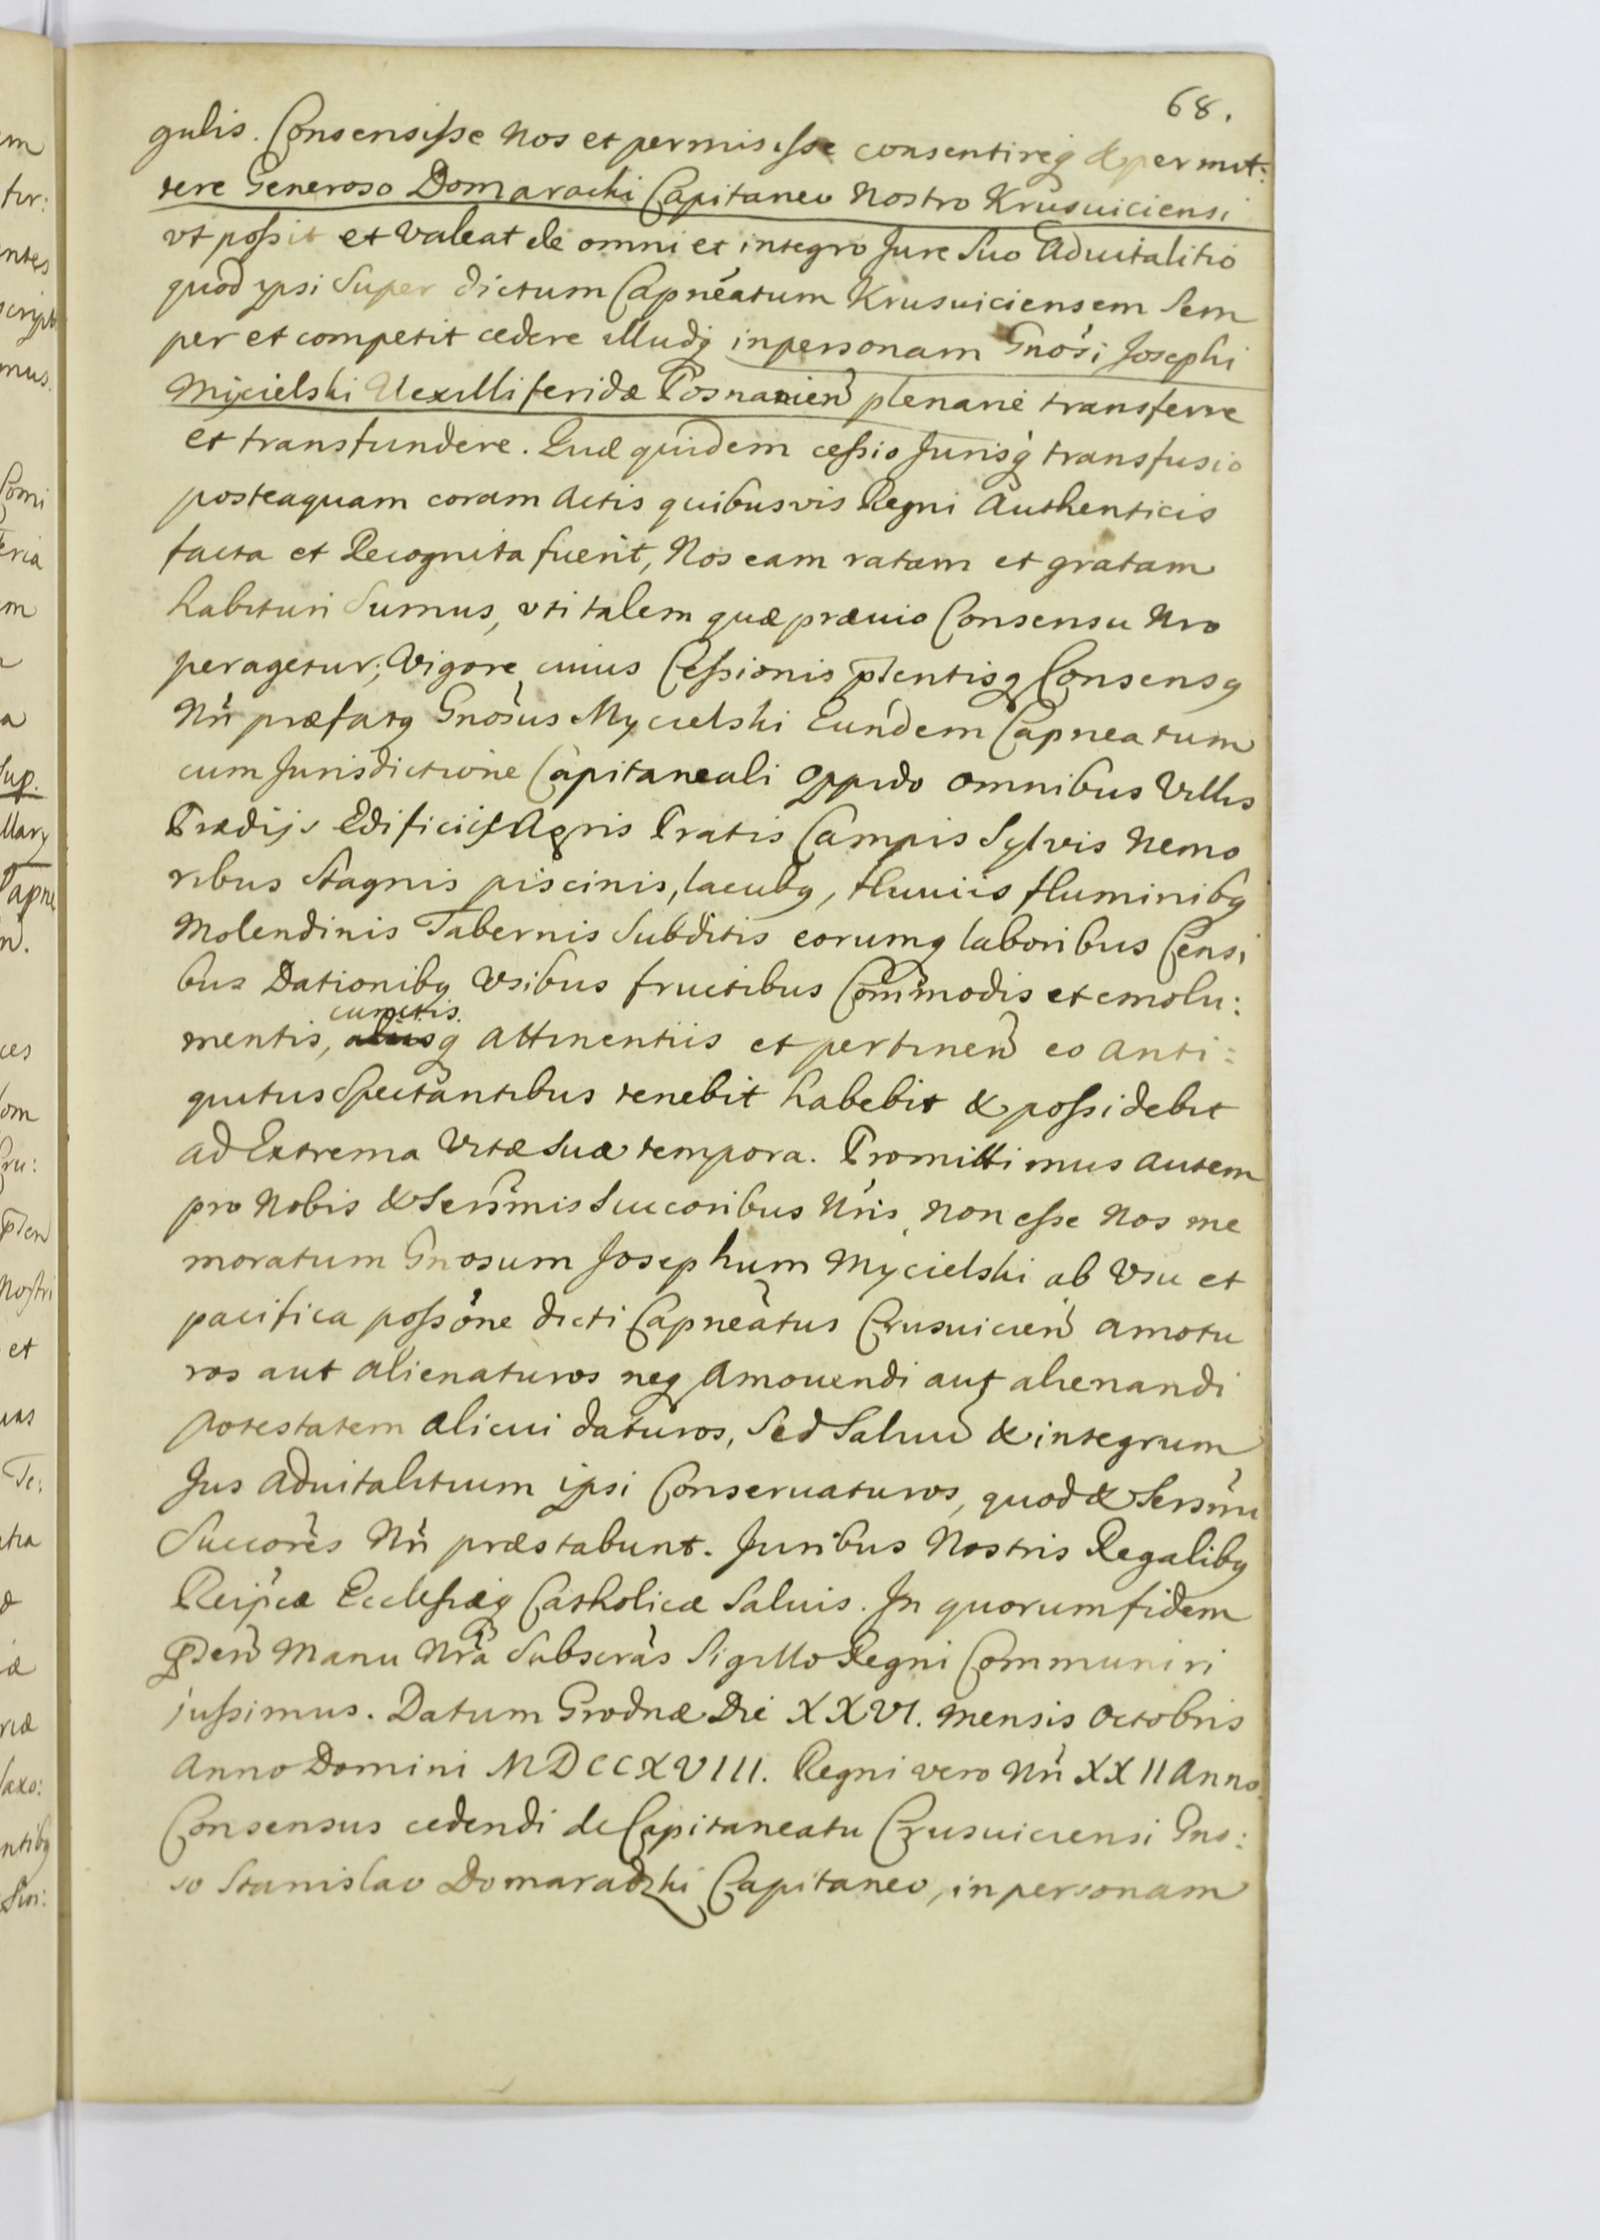 68.
gulis. Consensisse Nos et permisisse consentireq́ & permit:
tere Generoso Domaracki Capitaneo Nostro Krusuiciensi
vt possit et valeat de omni et integro Jure Suo Aduitalitio
quod ypsi Super dictum Capneatum Krusuiciensem Sem
per et competit cedere illudq́ in personam Gnosi Josephi
Mycielski Uexilliferidæ Posnanien plenarie transferre
et transfundere. Quæ quidem cessio Jurisq́ transfusio
posteaquam coram Actis quibusvis Regni Authenticis
facta et Recognita fuerit, Nos eam ratam et gratam
habituri Sumus, vti talem quæ præuio Consensu Nro
peragetur; Vigore cuius Cessionis ptentisq Consensq
Nri præfatq Gnosus Mycielski Eundem Capneatum
cum Jurisdictione Capitaneali Oppido omnibus Villis
Prædijs Edificiis Agris Pratis Campis Sylvis Nemo
ribus Stagnis piscinis, lacubq, fluuiis fluminibq
Molendinis Tabernis Subditis eorumq laboribus Censi
bus Dationibq Vsibus fructibus Commodis et emolu:
cunctis.
mentis, aliisq attinentiis et pertinen eo anti:
quitus Spectantibus tenebit habebit & possidebit
ad Extrema Vitæ Suæ tempora. Promittimus autem
pro Nobis & Sermis Succoribus Nris, non esse Nos me
moratum Gnosum Josephum Mycielski ab Vsu et
pacifica possone dicti Capneatus Crusuicien amotu
ros aut alienaturos neq Amouendi aut alienandi
potestatem alicui daturos, Sed Saluu & integrum
Jus aduitalitium ipsi Conseruaturos, quod & Sersmi
Succores Nri præstabunt. Juribus Nostris Regalibq
Reipcæ Ecclesiæq Catholicæ Saluis. In quorum fidem
pden Manu Nra Subscras Sigillo Regni Communiri
jussimus. Datum Grodnæ Die XXVI. Mensis Octobris
Anno Domini MDCCXVIII. Regni vero Nri XXII Anno.
Consensus cedendi de Capitaneatu Crusuiciensi Gno:
so Stanislao Domaradzki Capitaneo, in personam